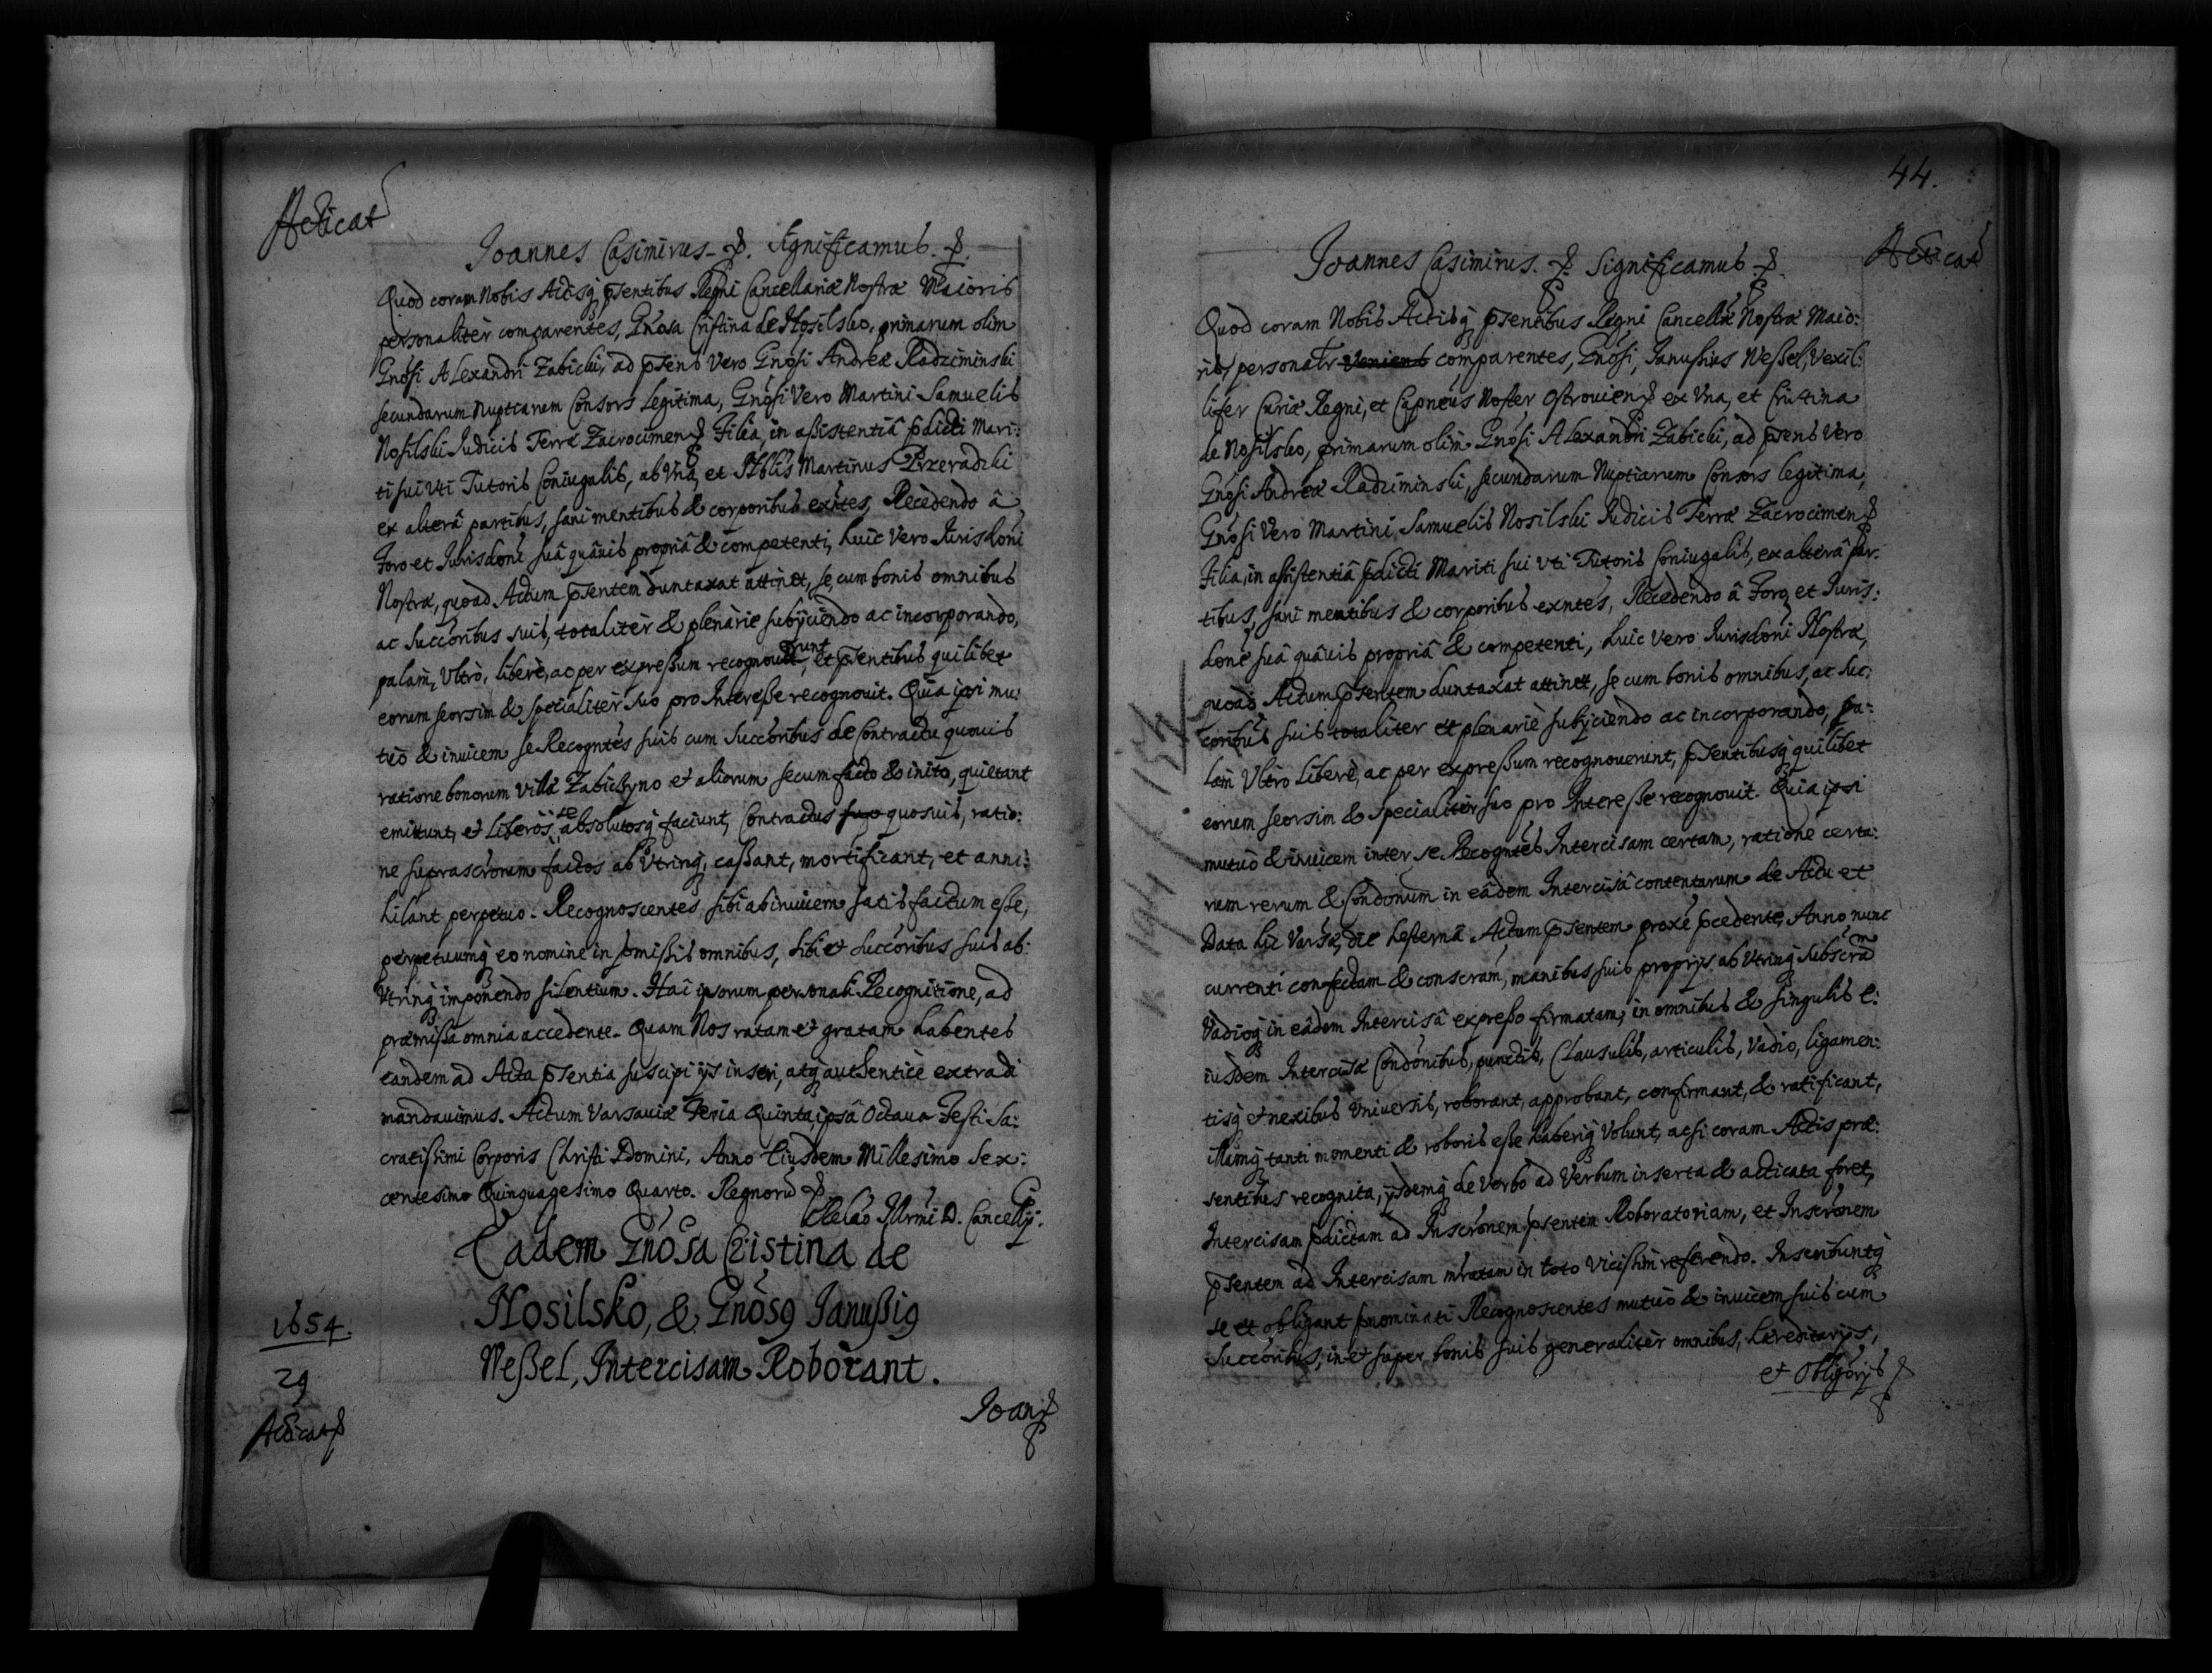 Acticat
Joannes Casimirus. Significamus.
Quod coram Nobis Actisq psentibus Regni Cancellariæ Nostræ Maioris
personaliter comparentes, Gnosa Cristina de Nosilsko, primarum olim
Gnosi Alexandri Zabicki, ad psens vero Gnosi Andreæ Radziminski
secundarum Nuptiarum Consors Legitima, Gnosi Vero Martini Samuelis
Nosilski Iudicis Terræ Zacrocimen Filia, in assistentiâ pdicti Mari:
ti sui vti Tutoris Coniugalis, ab Vna, et Nblis Martinus Przeradzki
ex alterâ partibus, sani mentibus & corporibus exntes, Recedendo â
Foro et Iurisdoni suâ quâuis propriâ & competenti, huic Vero Iurisdoni
Nostræ, quoad Actum psentem duntaxat attinet, se cum bonis omnibus
ac Succoribus suis, totaliter & plenarie subÿciendo ac incorporando,
palam, Vltro, liberè, ac per expreßum recognouerunt, et psentibus quilibet
eorum seorsim & specialiter suo pro Intereße recognouit. Quia ipsi mu:
tuò & inuicem se Recogntes suis cum Succoribus de Contractu quouis
ratione bonorum villæ Zabickÿno et aliorum secum facto & inito, quietant
emittunt, et liberos absolutosq faciunt, Contractus suo quosuis, ratio:
ne suprascrorum factos ab Vtrinq, caßant, mortificant, et anni:
hilant perpetuo. Recognoscentes sibi abinuicem satisfactum eße,
perpetuumq eo nomine in pmißis omnibus, sibi et Succoribus suis ab:
Vtrinq imponendo silentium. Hac ipsorum personali Recognitione, ad
præmißa omnia accedente. Quam Nos ratam et gratam habentes
eandem ad Acta psentia suscipi ijs inseri, atq authenticè extradi
mandauimus. Actum Varsauiæ Feria Quinta, ipsâ Octaua Festi Sa:
cratißimi Corporis Christi Domini, Anno Eiusdem Millesimo Sex:
centesimo Quinquagesimo Quarto. Regnorū
Relao Illrmi D. Cancellÿ.
Eadem Gnosa Cristina de
Nosilsko, & Gnosq Janußiq
Weßel, Intercisam Roborant.
1654.
29
Acticat
Joan
44.
Acticat
Joannes Casimirus. Significamus
Quod coram Nobis Actisq psentibus Regni Cancellæ Nostræ Maio:
ris, personalr Veniens comparentes, Gnosi, Janußius Weßel, Vexil:
lifer Curiæ Regni, et Capneus Noster Ostrouien ex Vna, et Cristina
de Nosilsko, primarum olim Gnosi Alexandri Zabicki, ad psens vero
Gnosi Andreæ Radziminski, secundarum Nuptiarum Consors legitima,
Gnosi Vero Martini Samuelis Nosilski Iudicis Terræ Zacrocimen
Filia, in assistentiâ pdicti Mariti sui vti Tutoris Coniugalis, ex alterâ par:
tibus, sani mentibus & corporibus exntes, Recedendo â Foro et Iuris:
done suâ quâuis propriâ & competenti, huic vero Iurisdoni Nostræ,
quoad Actum psentem duntaxat attinet, se cum bonis omnibus, ac Suc:
coribus suis totaliter et plenariè subÿciendo ac incorporando, pa:
lam Vltro liberè, ac per expreßum recognouerunt, psentibusq quilibet
eorum seorsim & specialiter suo pro Intereße recognouit. Quia ipsi
mutuò & inuicem inter se Recogntes Intercisam certam, ratione certa:
rum rerum & Condonum in eâdem Intercisâ contentarum de Actu et
Data hic Varsæ, die hesternâ Actum psentem proxè pcedente, Anno nunc
currenti confectam & conscram, manibus suis proprÿs ab Vtrinq Subscram
Vadioq in eâdem Intercisâ expreßo firmatam, in omnibus & singulis e:
iusdem Intercisæ Condonibus, punctis, Clausulis, articulis, vadio, ligamen:
tisq et nexibus Vniuersis, roborant, approbant, confirmant, & ratificant,
illamq tanti momenti & roboris eße haberiq volunt, acsi coram Actis præ:
sentibus recognita, ÿsdemq de Verbo ad Verbum inserta & acticata foret,
Intercisam pdictam ad Inscronem psentem Roboratoriam, et Inscronem
psentem ad Intercisam in toto vicißim referendo. Inscribuntq
se et obligant pnominati Recognoscentes mutuò & inuicem suis cum
Succoribus, in et super bonis suis generaliter omnibus, hæreditarÿs,
et Obligorÿs